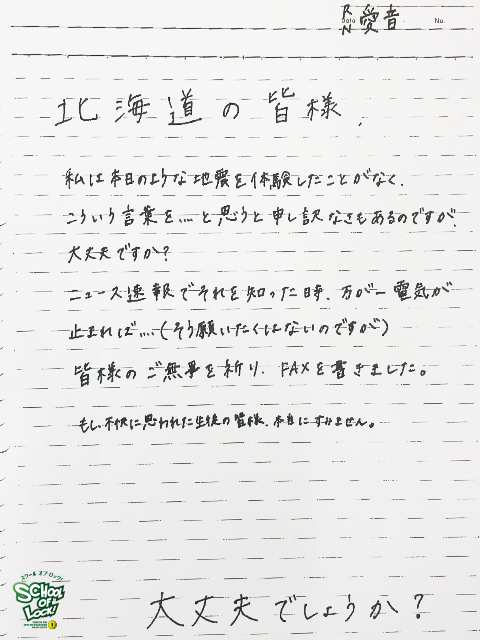 RN 愛音
Date
No.
北海道の皆様、
私は本日のような地震を体験したことがなく、
こういう言葉を….と思うと申し訳なさもあるのですが、
大丈夫ですか?
ニュース速報でそれを知った時、万が一電気が
止まれば….(そう願いたくはないのですが)
皆様のご無事を祈り、FAXを書きました。
もし、不快に思われた生徒の皆様、本当にすみません。
スクール オブ ロック!
SCHOOL OF LOCK!
大丈夫でしょうか?